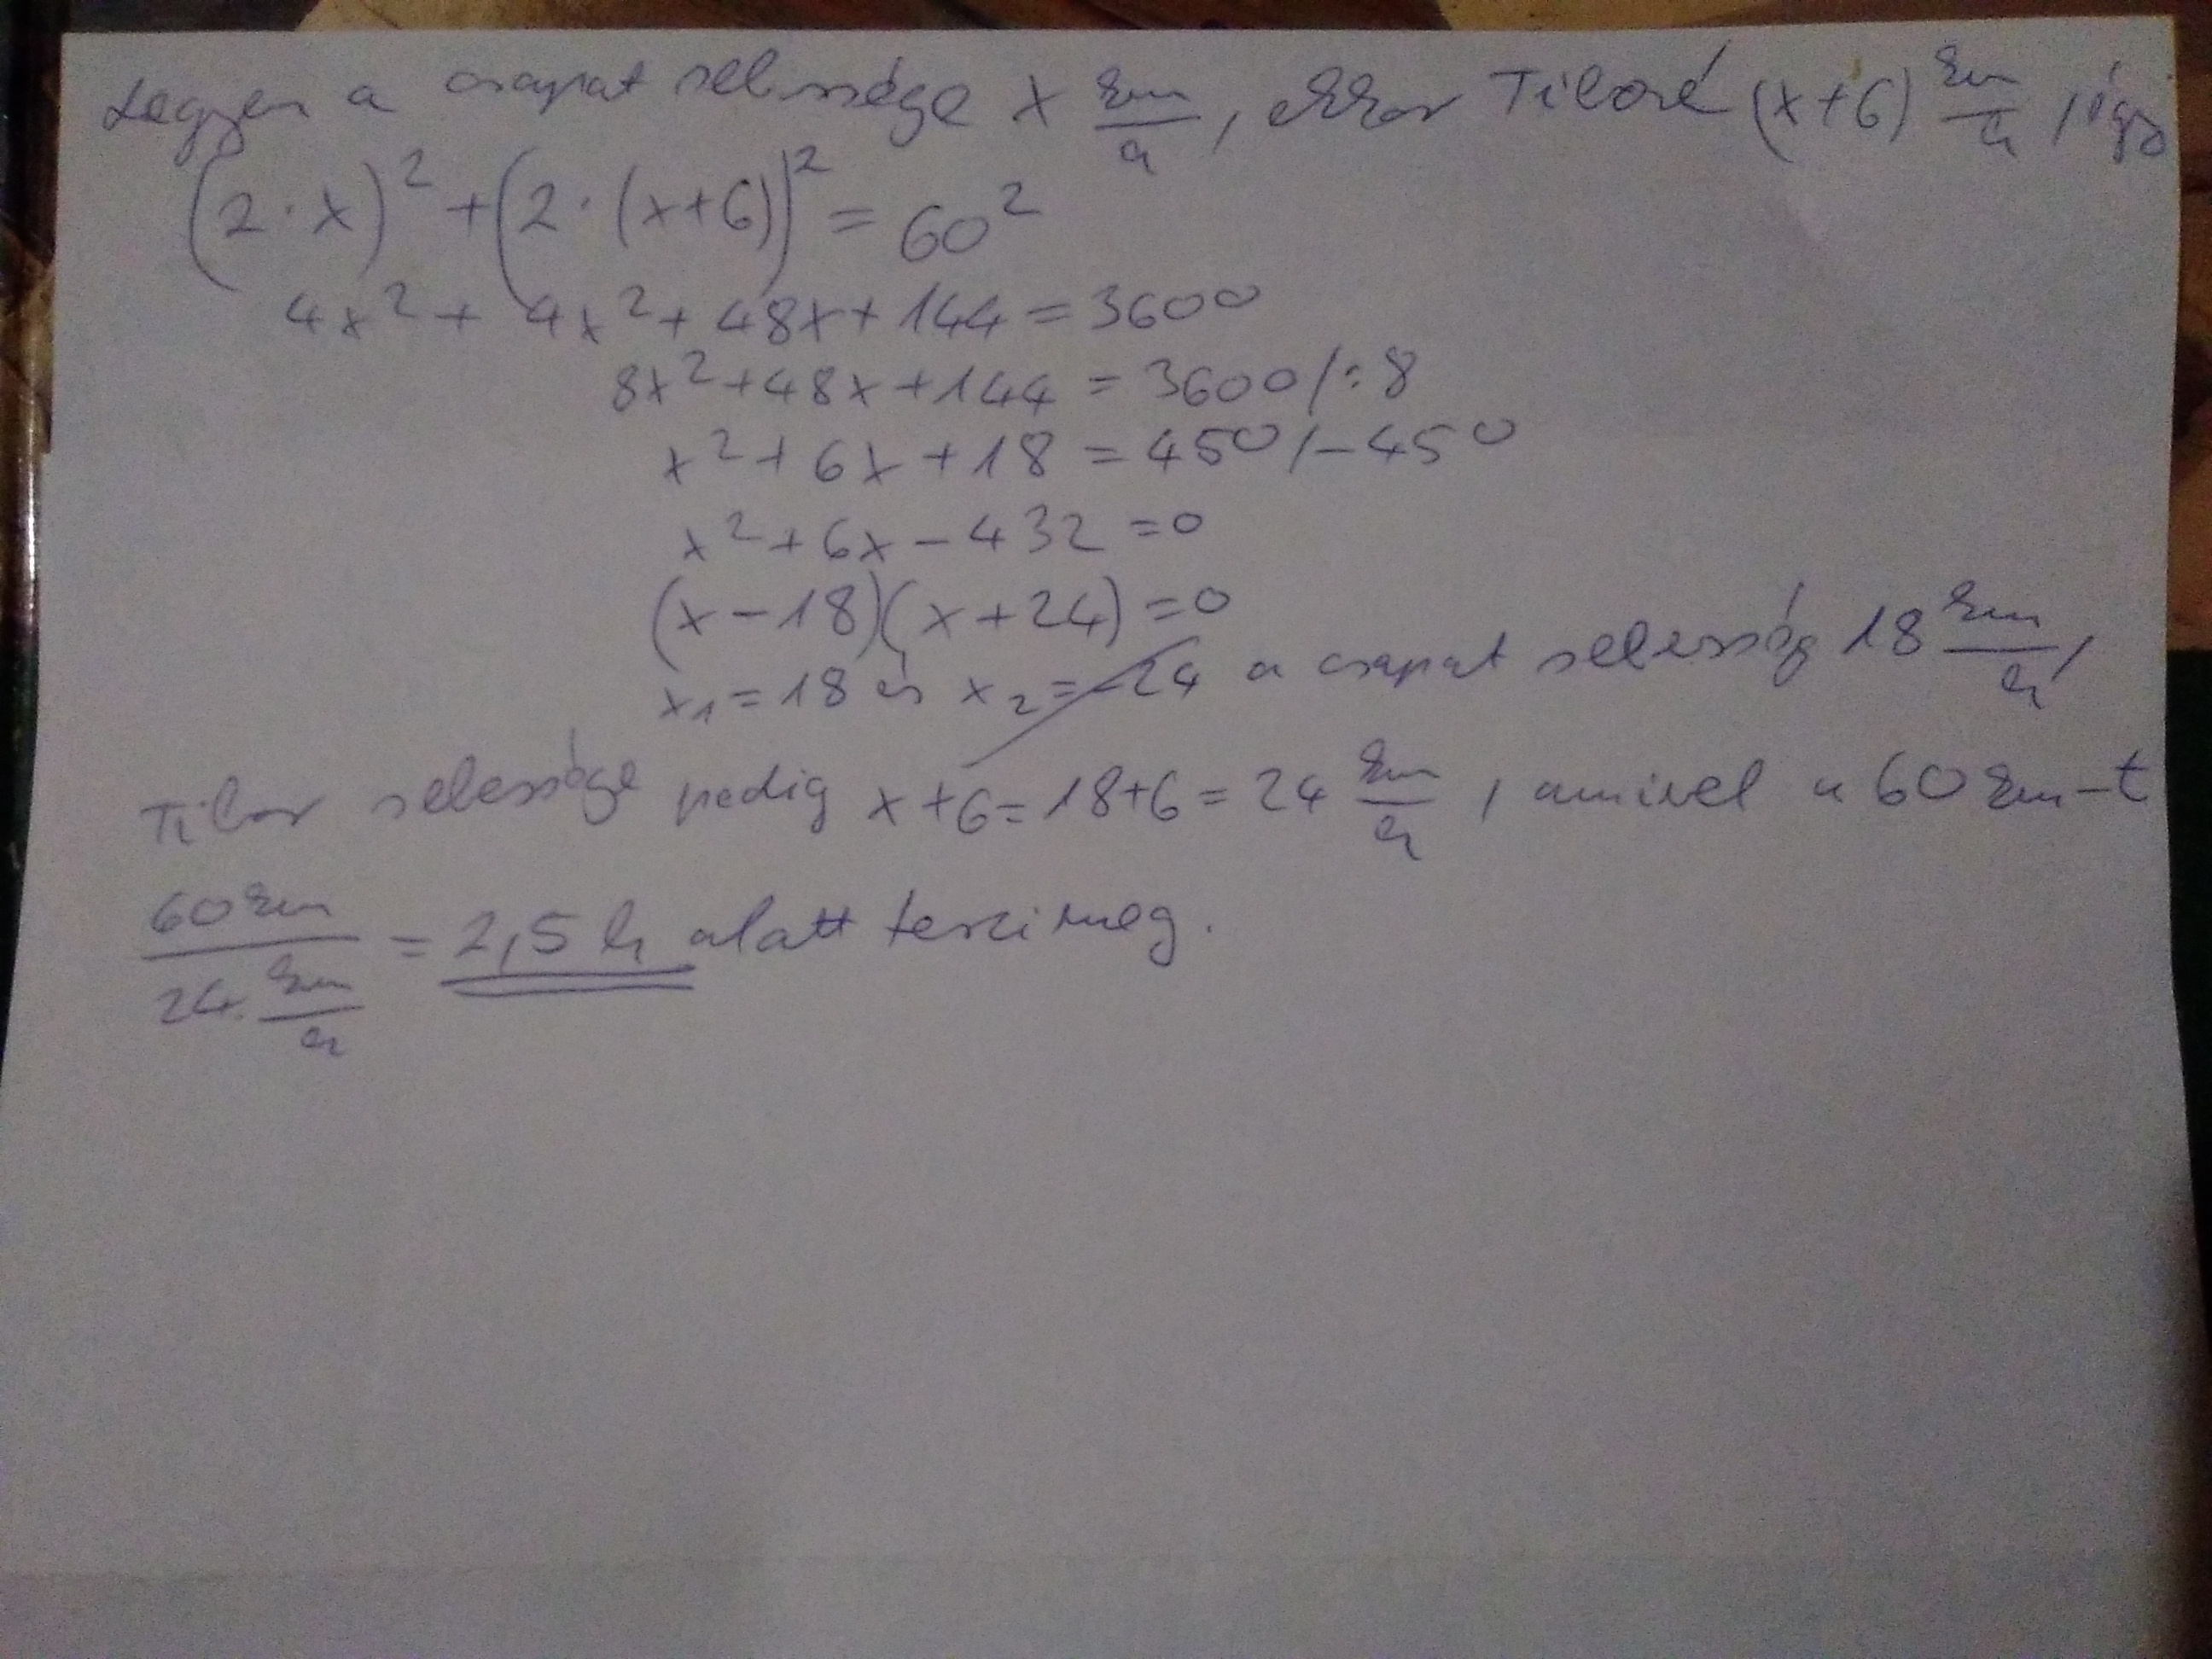 Legyen a csapat sebessége x km/h, ekkor Tiboré (x+6) km/h, így
(2·x)² + (2·(x+6))² = 60²
4x² + 4x² + 48x + 144 = 3600
8x² + 48x + 144 = 3600 /:8
x² + 6x + 18 = 450 /-450
x² + 6x - 432 = 0
(x-18)(x+24) = 0
x₁ = 18 és x₂ = -24 a csapat sebesség 18 km/h,
Tibor sebessége pedig x+6 = 18+6 = 24 km/h, amivel a 60 km-t
60 km / 24 km/h = 2,5 h alatt teszi meg.